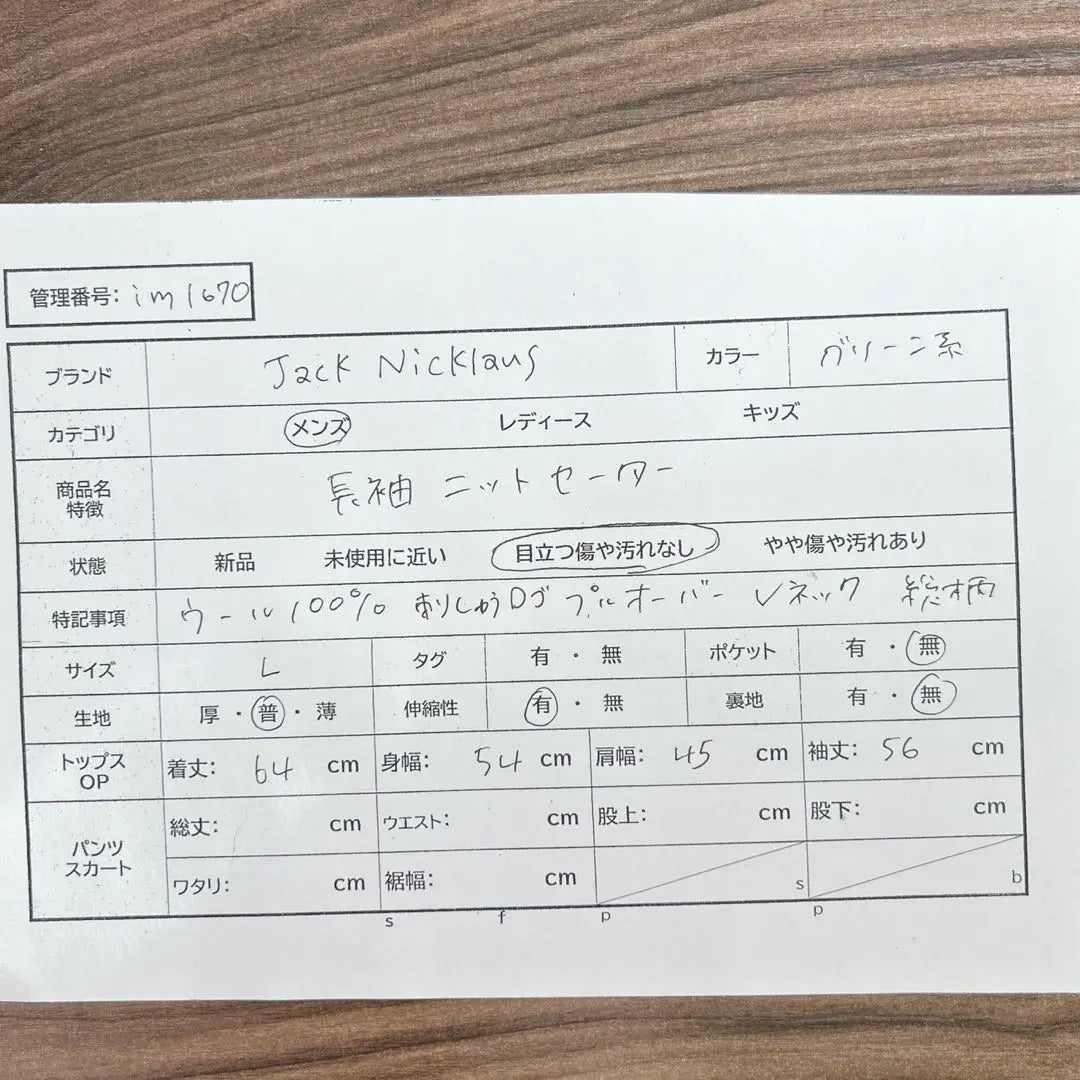 管理番号: im1670
ブランド Jack Nicklaus カラー グリーン系
カテゴリ メンズ レディース キッズ
商品名 特徴 長袖 ニット セーター
状態 新品 未使用に近い 目立つ傷や汚れなし やや傷や汚れあり
特記事項 ウール100% ありしゅうロゴ プルオーバー Vネック 総柄
サイズ L タグ 有 ・ 無 ポケット 有 ・ 無
生地 厚 ・ 普 ・ 薄 伸縮性 有 ・ 無 裏地 有 ・ 無
トップス OP 着丈: 64 cm 身幅: 54 cm 肩幅: 45 cm 袖丈: 56 cm
パンツ スカート 総丈: cm ウエスト: cm 股上: cm 股下: cm
ワタリ: cm 裾幅: cm s b
s f p p